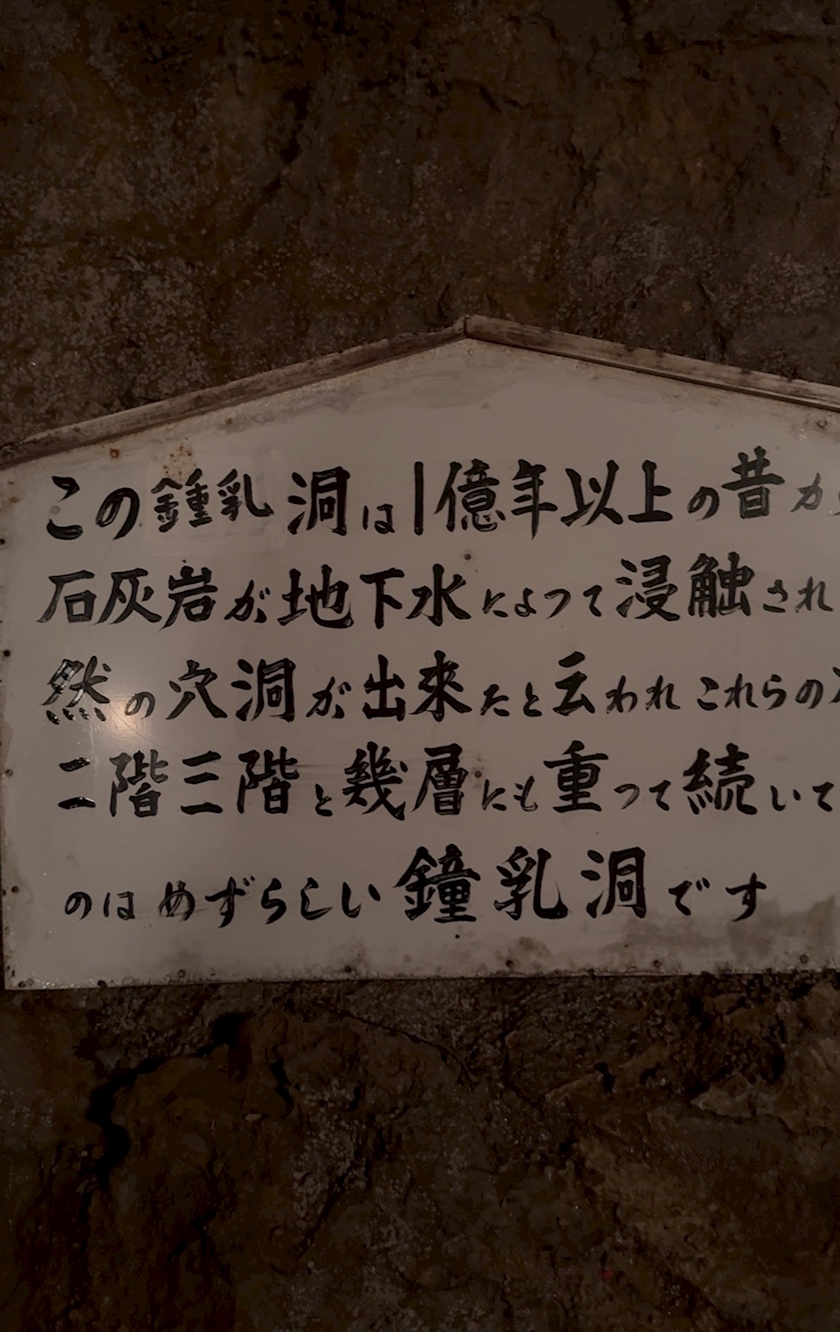 この鍾乳洞は1億年以上の昔か
石灰岩が地下水によって浸触され
然の穴洞が出来たと云われこれらの
二階三階と幾層にも重って続いて
のはめずらしい鐘乳洞です